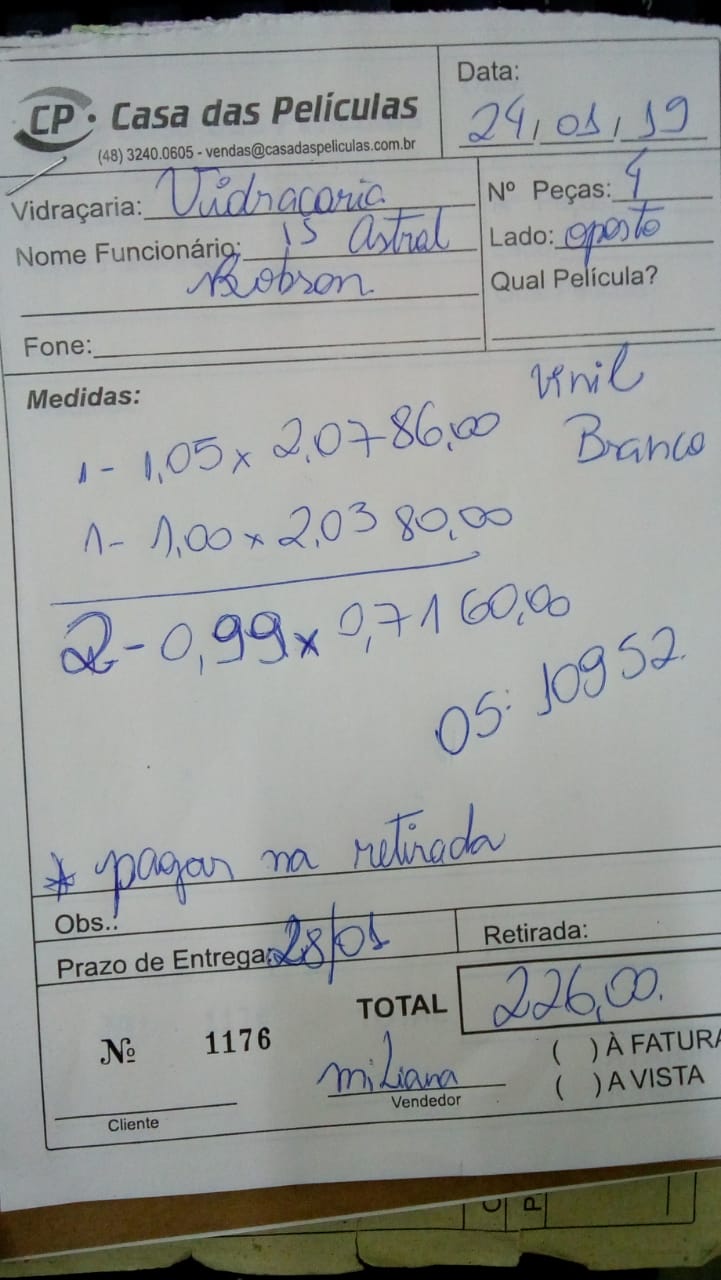 CP · Casa das Películas
(48) 3240.0605 - vendas@casadaspeliculas.com.br
Data:
24/01/19
Vidraçaria: Vidraçaria
Nome Funcionário: 15 Astral
Robson
Fone:
Nº Peças: 4
Lado: oposto
Qual Película?
Vinil
Branco
Medidas:
1- 1,05 x 2,07 86,00
1- 1,00 x 2,03 80,00
2- 0,99 x 0,71 60,00
OS: 10952.
* pagar na retirada
Obs.:
Prazo de Entrega: 28/01
Retirada:
TOTAL 226,00.
Nº 1176
( ) À FATURA
( ) A VISTA
miliana
Vendedor
Cliente